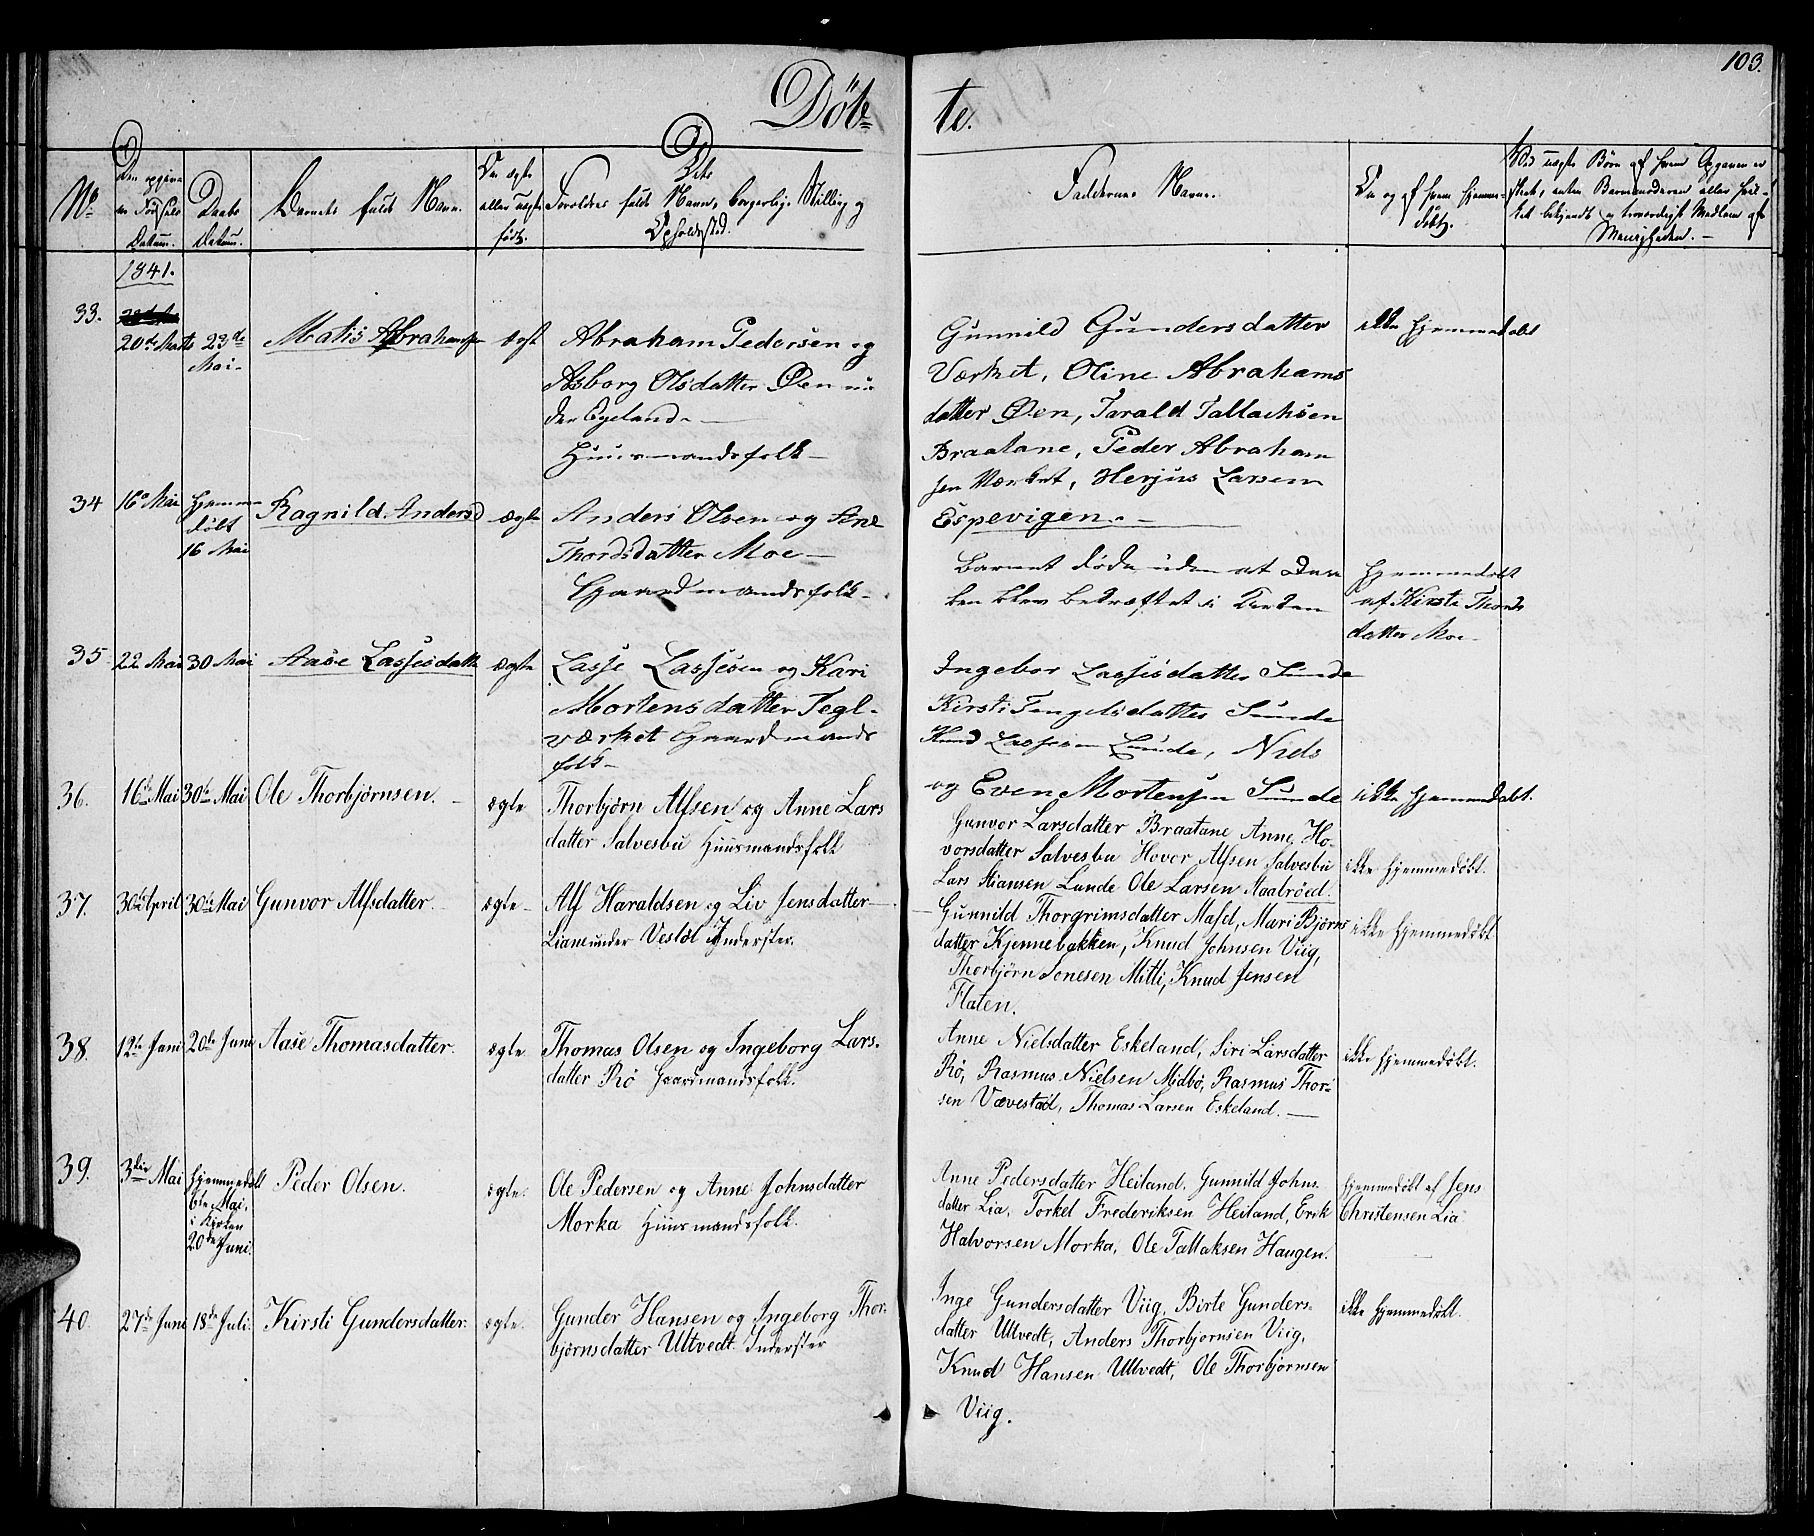 103.
Døb= te.
No
Den opgivne Fødsels Datum.
Daabs Datum.
Barnets fulde Navn.
Om ægte eller uægte født.
Forældres fulde Navn, borgerlige Stilling og
Opholdssted.
Faddernes Navne.
Om og af hvem hjemme-
døbt.
Ved uægte Børn af hvem Opgaven er
skeet, enten Barnemoderen eller hvil-
ket bekjendt og troværdigt Medlem af
Menigheden. —
1841.
33.
20de Marts
23de
Mai
Matis Abrahamsen
ægte
Abraham Pedersen og
Asborg Olsdatter Øen un-
der Egeland. —
Huusmandsfolk —
Gunnild Gundersdatter
Værket, Oline Abrahams
datter Øen, Tarald Tallachsen
Braatane, Peder Abraham
sen Værket, Herjus Larsen
Espevigen. —
ikke hjemmedøbt
34
16 Mai
Hjemme
døbt
16 Mai
Ragnild Andersd
ægte
Anders Olsen og Ane
Thordsdatter Moe —
Gaardmandsfolk —
Barnet døde uden at Daa
ben blev bekræftet i Kirken
Hjemmedøbt
af Kirsti Thords
datter Moe
35
22 Mai
30 Mai
Aase Lassesdatt
ægte
Lasse Lassesen og Kari
Mortensdatter Tegl-
værket Gaardmands
folk —
Ingebor Lassesdatter Sunde
Kirsti Tengelsdatter Sunde
Knud Lassesen Lunde, Niels
og Even Mortensen Sunde
ikke hjemmedøbt.
36.
16de Mai
30te Mai
Ole Thorbjørnsen. —
ægte
Thorbjørn Alfsen og Anne Lars
datter Salvesbu Huusmandsfolk
Gunvor Larsdatter Braatane Anne Ho-
vorsdatter Salvesbu Hovor Alfsen Salvesbu
Lars Stiansen Lunde Ole Larsen Aabrøed.
ikke hjemmedøbt.
37.
30te April
30te Mai
Gunvor Alfsdatter.
ægte
Alf Haraldsen og Liv Jensdatter
Liane under Vesløl Inderster.
Gunnild Thorgrimsdatter Masd, Mari Bjørns
datter Kjennebakken, Knud Johnsen Viig,
Thorbjørn Sonesen Mitti, Knud Jensen
Flaten.
ikke hjemmedøbt
38.
12te Juni
20de Juni
Aase Thomasdatter.
ægte
Thomas Olsen og Ingeborg Lars-
datter Rø Gaardmandsfolk.
Anne Nielsdatter Eskeland, Siri Larsdatter
Rø, Rasmus Nielsen Midbø, Rasmus Thori-
sen Vævestad, Thomas Larsen Eskeland. —
ikke hjemmedøbt.
39.
3die Mai
Hjemmedøbt
6te Mai,
i Kirken
20de Juni.
Peder Olsen.
ægte.
Ole Pedersen og Anne Johnsdatter
Morka Huusmandsfolk.
Anne Pedersdatter Heiland, Gunnild Johns
datter Lia, Torkel Frederiksen Heiland, Erik
Halvorsen Morka, Ole Tallaksen Haugen.
hjemmedøbt af Jens
Christensen Lia
40.
27de Juni
18de Juli.
Kirsti Gundersdatter.
ægte.
Gunder Hansen og Ingeborg Thor-
bjørnsdatter Ultvedt. Inderster
Inge Gundersdatter Viig, Birte Gunders-
datter Ultvedt, Anders Thorbjørnsen Viig,
Knud Hansen Ultvedt, Ole Thorbjørnsen
Viig.
ikke hjemmedøbt.